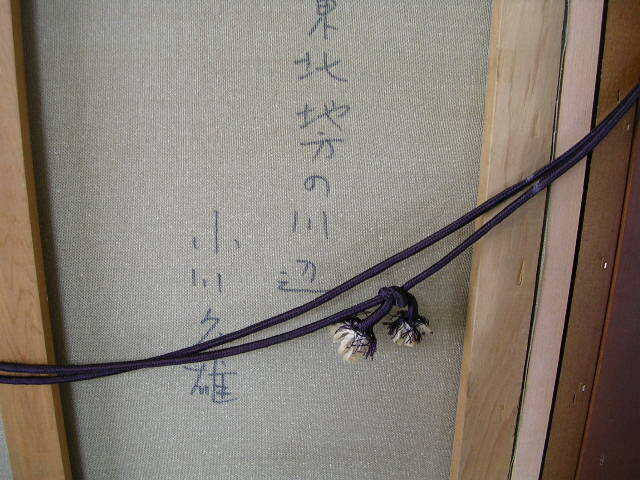 東北地方の川辺
小川久雄